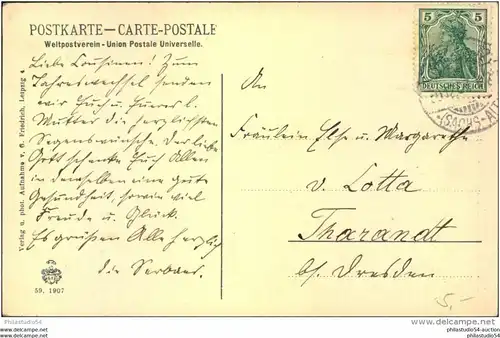 POSTKARTE—CARTE-POSTALE
Weltpostverein - Union Postale Universelle.
Liebe Cousinen! Zum
Jahreswechsel senden
wir Euch u. Eurer l.
Mutter die herzlichsten
Segenswünsche. Der liebe
Gott schenke Euch Allen
in demselben eine gute
Gesundheit, sowie viel
Freude u. Glück.
Es grüßen Alle herzlich
die
Verlag u. phot. Aufnahme v. R. Friedrich, Leipzig 4
59, 1907
5 5
DEUTSCHES REICH
(SACHS-A
An
Fräulein Else u. Margarethe
v. Lotta
Tharandt
b/ Dresden
5,-
philastudio54
Philastudio54
philastudio54-auction
Philastudio54.com